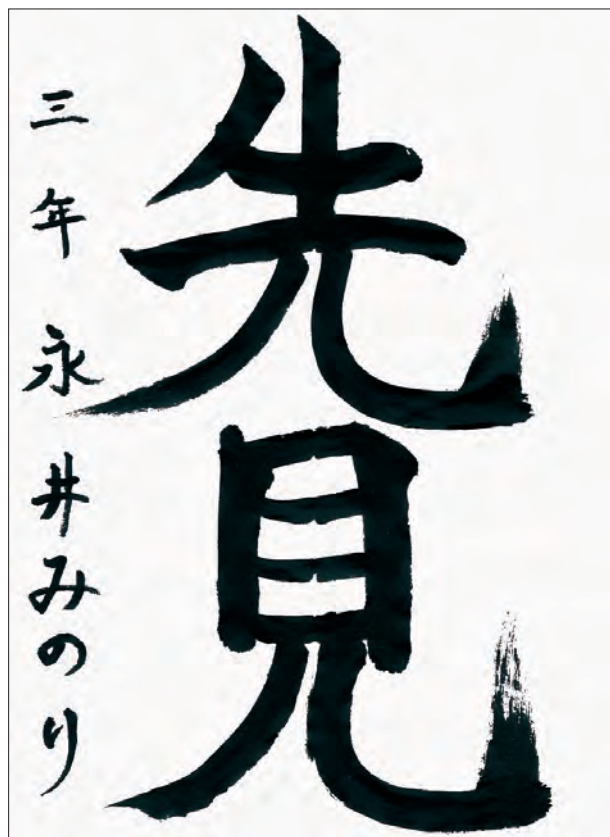 先見
三年永井みのり